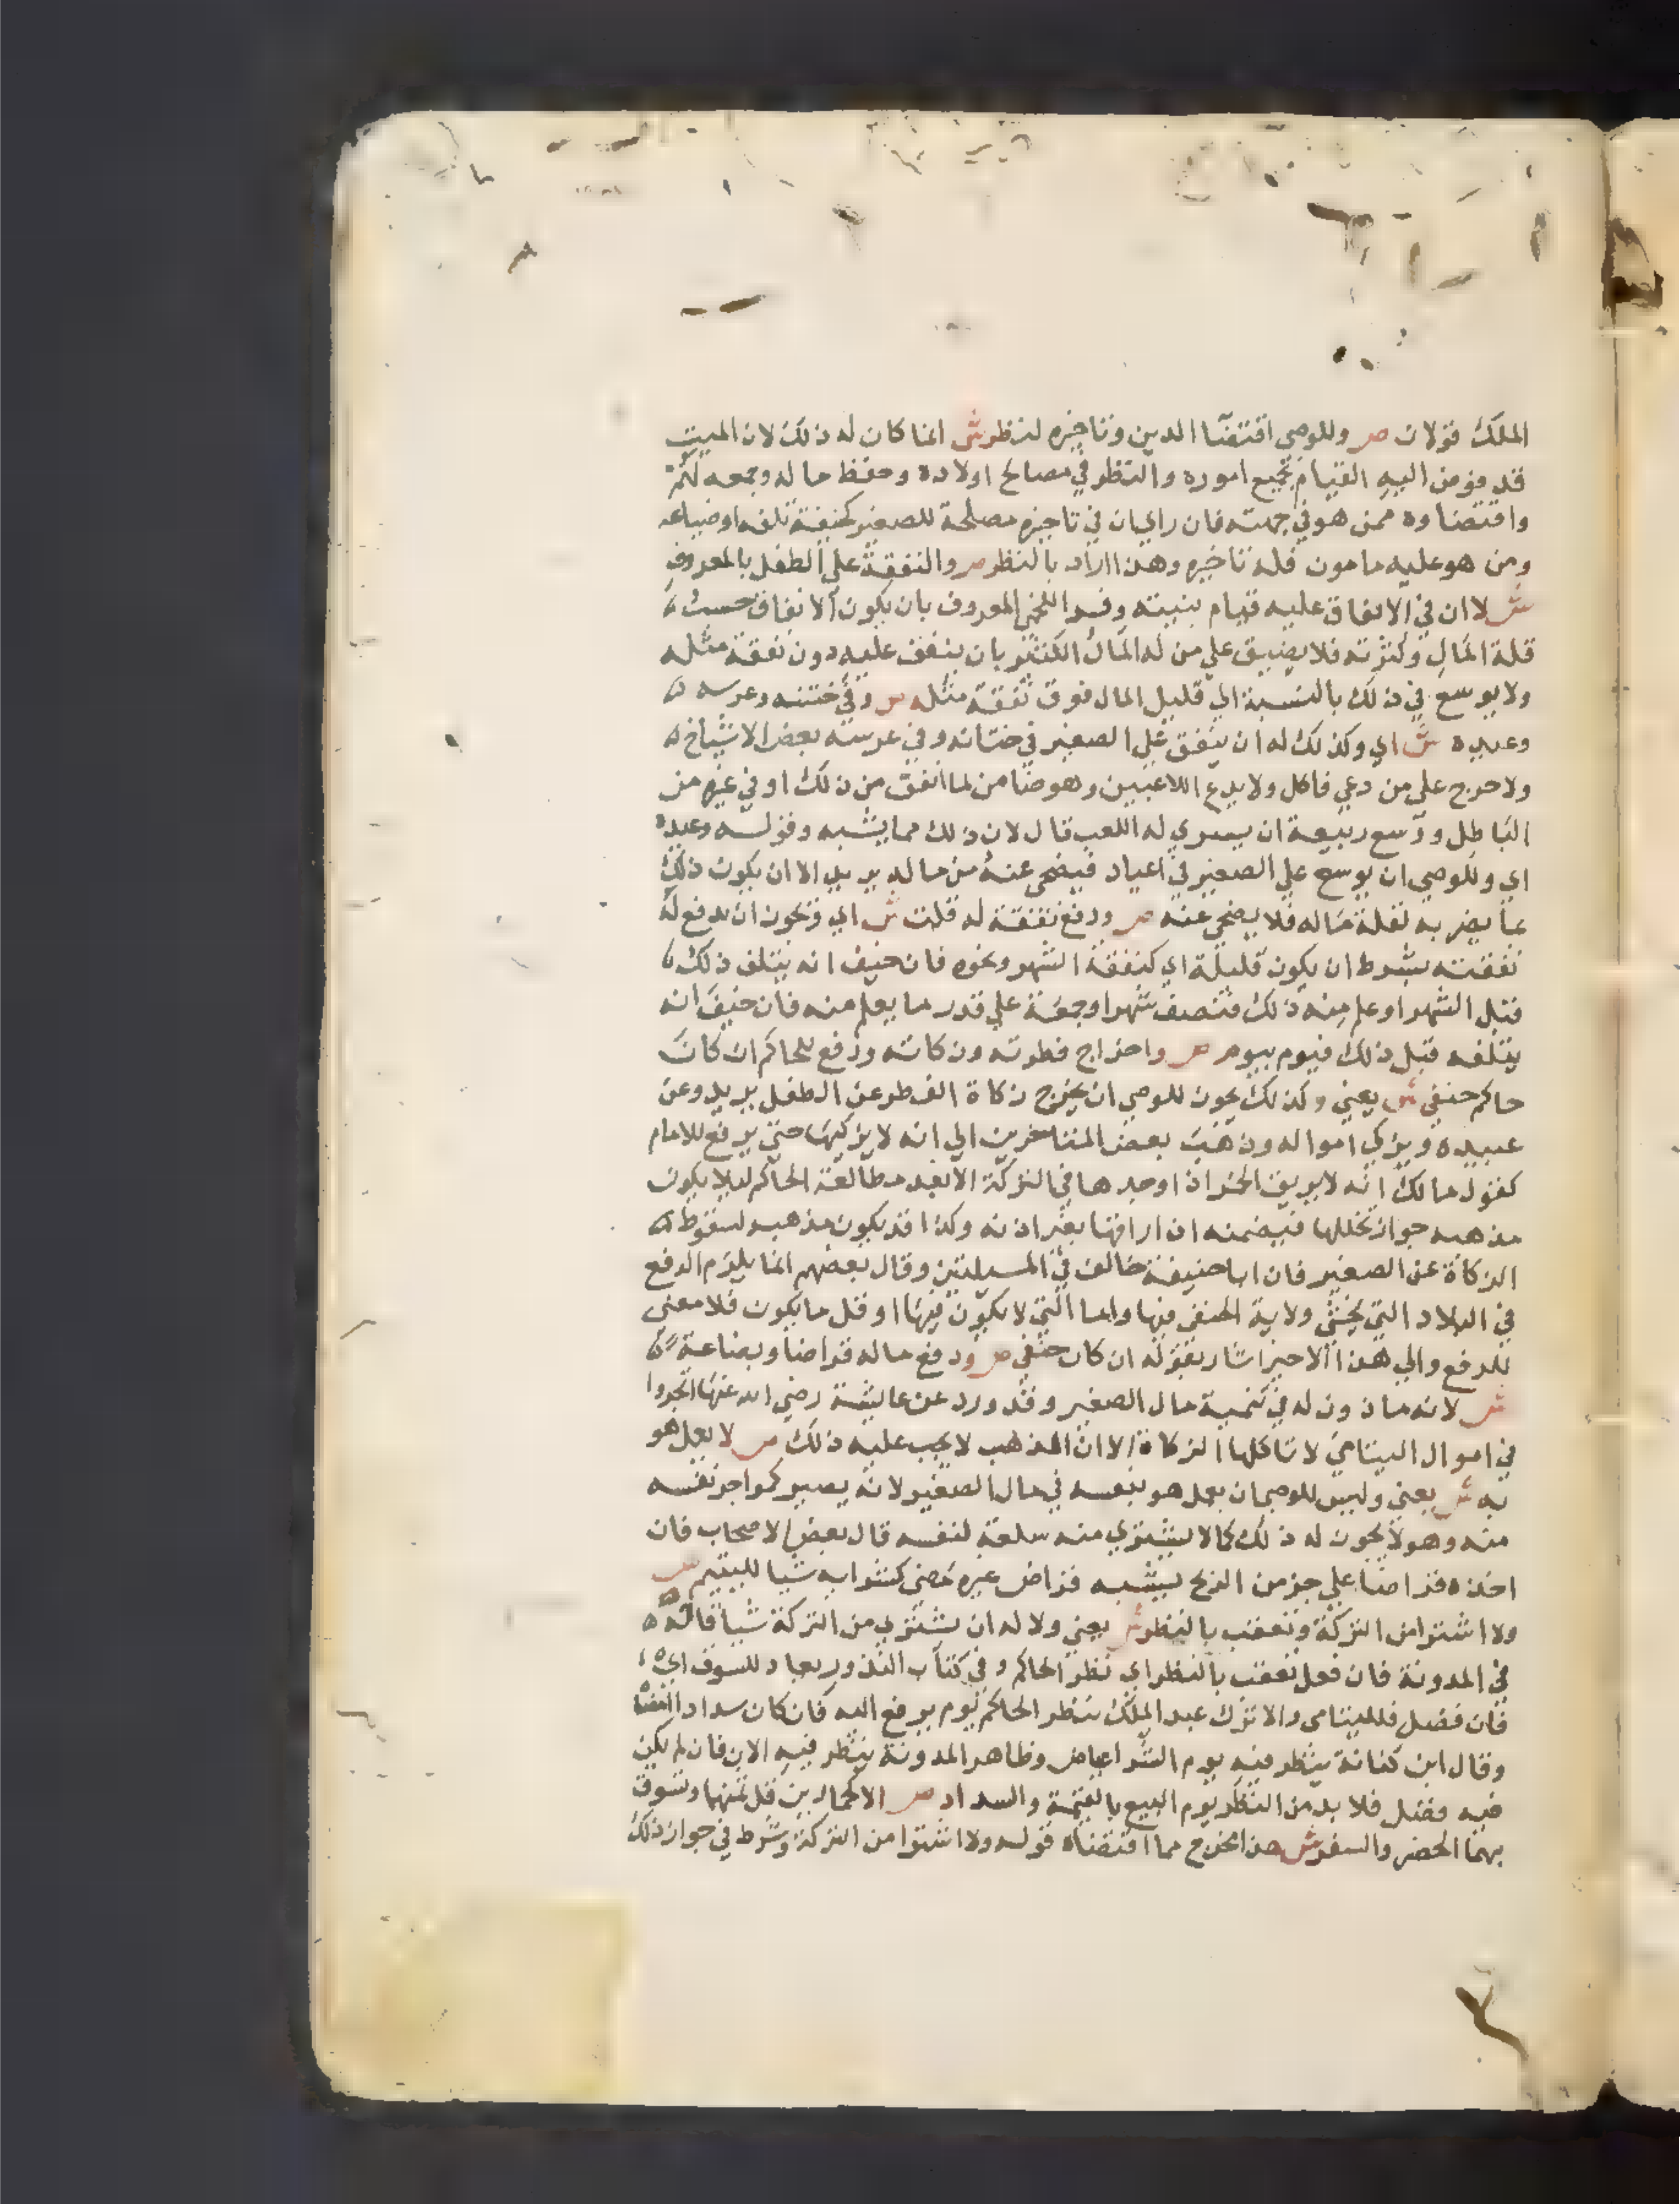 الملك قولان ص وللوصي اقتضا الدين وتاخيره لنظر ش انما كان له ذلك لان الميت
قد فوض اليه القيام بجميع اموره والنظر في مصالح اولاده وحفظ ماله وجمعه لهم
واقتضاوه ممن هو في جهته فان راي ان في تاخيره مصلحة للصغير كخيفة تلفه او ضياعه
ومن هو عليه مامون فله تاخيره وهذا اراد بالنظر ص والنفقة على الطفل بالمعروف
ش لا ان في الانفاق عليه قيام بنيته وفسر اللخمي المعروف بان يكون الانفاق حسب
قلة المال وكثرته فلا يضيق علي من له المال الكثير بان ينفق عليه دون نفقة مثله
ولا يوسع في ذلك بالنسبة الي قليل المال فوق نفقة مثله ص وفي ختنه وعرسه
وعيده ش اي وكذلك له ان ينفق علي الصغير في ختانه وفي عرسه بعض الاشياخ
ولا حرج علي من دعي فاكل ولا يدع اللاعبين وهو ضامن لما انفق من ذلك او في غيره من
الباطل ووسع ربيعة ان يسري له اللعب قال لان ذلك مما يشبه وقوله وعيده
اي وللوصي ان يوسع علي الصغير في اعياد فيضحى عنه من ماله يريد الا ان يكون ذلك
مما يضر به لقلة ماله فلا يضحي عنه ص ودفع نفقة له قلت ش اي ويجوز ان يدفع له
نفقته بشرط ان يكون قليلة اي كنفقة الشهر ونحوه فان خيف انه يتلف ذلك
قبل الشهر او علم منه ذلك فنصف شهر او جمعة علي قدر ما يعلم منه فان خيف انه
يتلفه قبل ذلك فيوم بيوم ص واخراج فطرته وزكاته ورفع للحاكم ان كان
حاكم حنفي ش يعني وكذلك يجوز للوصي ان يخرج زكاة الفطر عن الطفل يريد وعن
عبيده ويزكي امواله وذهب بعض المتاخرين الي انه لا يزكيها حتى يرفع للامام
كقول مالك انه لا يريق الخمر اذا وجدها في التركة الا بعد مطالعة الحاكم ليلا يكون
مذهبه جواز تخللها فيضمنه ان اراقها بغير اذنه وكذا قد يكون مذهبه لسقوط
الزكاة عن الصغير فان ابا حنيفة خالف في المسيلتين وقال بعضهم انما يلزم الرفع
في البلاد التي يخشي ولاية الحنفي فيها واما التي لا يكون فيها او قل ما يكون فلا معنى
للرفع والي هذا الاخير اشار بقوله ان كان حنفي ص ودفع ماله قراضا وبضاعة
ش لانه ماذون له في تنمية مال الصغير وقد ورد عن عايشة رضي الله عنها اتجروا
في اموال اليتامي لا تاكلها الزكاة الا ان المذهب لا يجب عليه ذلك ص لا يعمل هو
به ش يعني وليس للوصي ان يعمل هو بنفسه في مال الصغير لانه يصير كمواجر نفسه
منه وهو لا يجوز له ذلك كما لا يشتري منه سلعة لنفسه قال بعض الاصحاب فان
اخذه قراضا علي جز من الربح يشبه قراض غيره مضي كشرابه شيا لليتيم ص
ولا اشترا من التركة وتعقب بالنظر ش يعني ولا له ان يشتري من التركة شيا قاله
في المدونة فان فعل تعقب بالنظر اي نظر الحاكم وفي كتاب النذور يعاد للسوق اي
فان فضل فلليتامى والا ترك عبد الملك ينظر الحاكم يوم يرفع اليه فان كان سدادا امضا
وقال ابن كنانة ينظر فيه يوم الشرا عياض وظاهر المدونة ينظر فيه الان فان لم يكن
فيه فضل فلا بد من النظر يوم البيع بالقيمة والسداد ص الا كحمارين قل ثمنهما وتسوق
بهما الحضر والسفر ش هذا مخرج مما اقتضاه قوله ولا اشترا من التركة وشرط في جواز ذلك